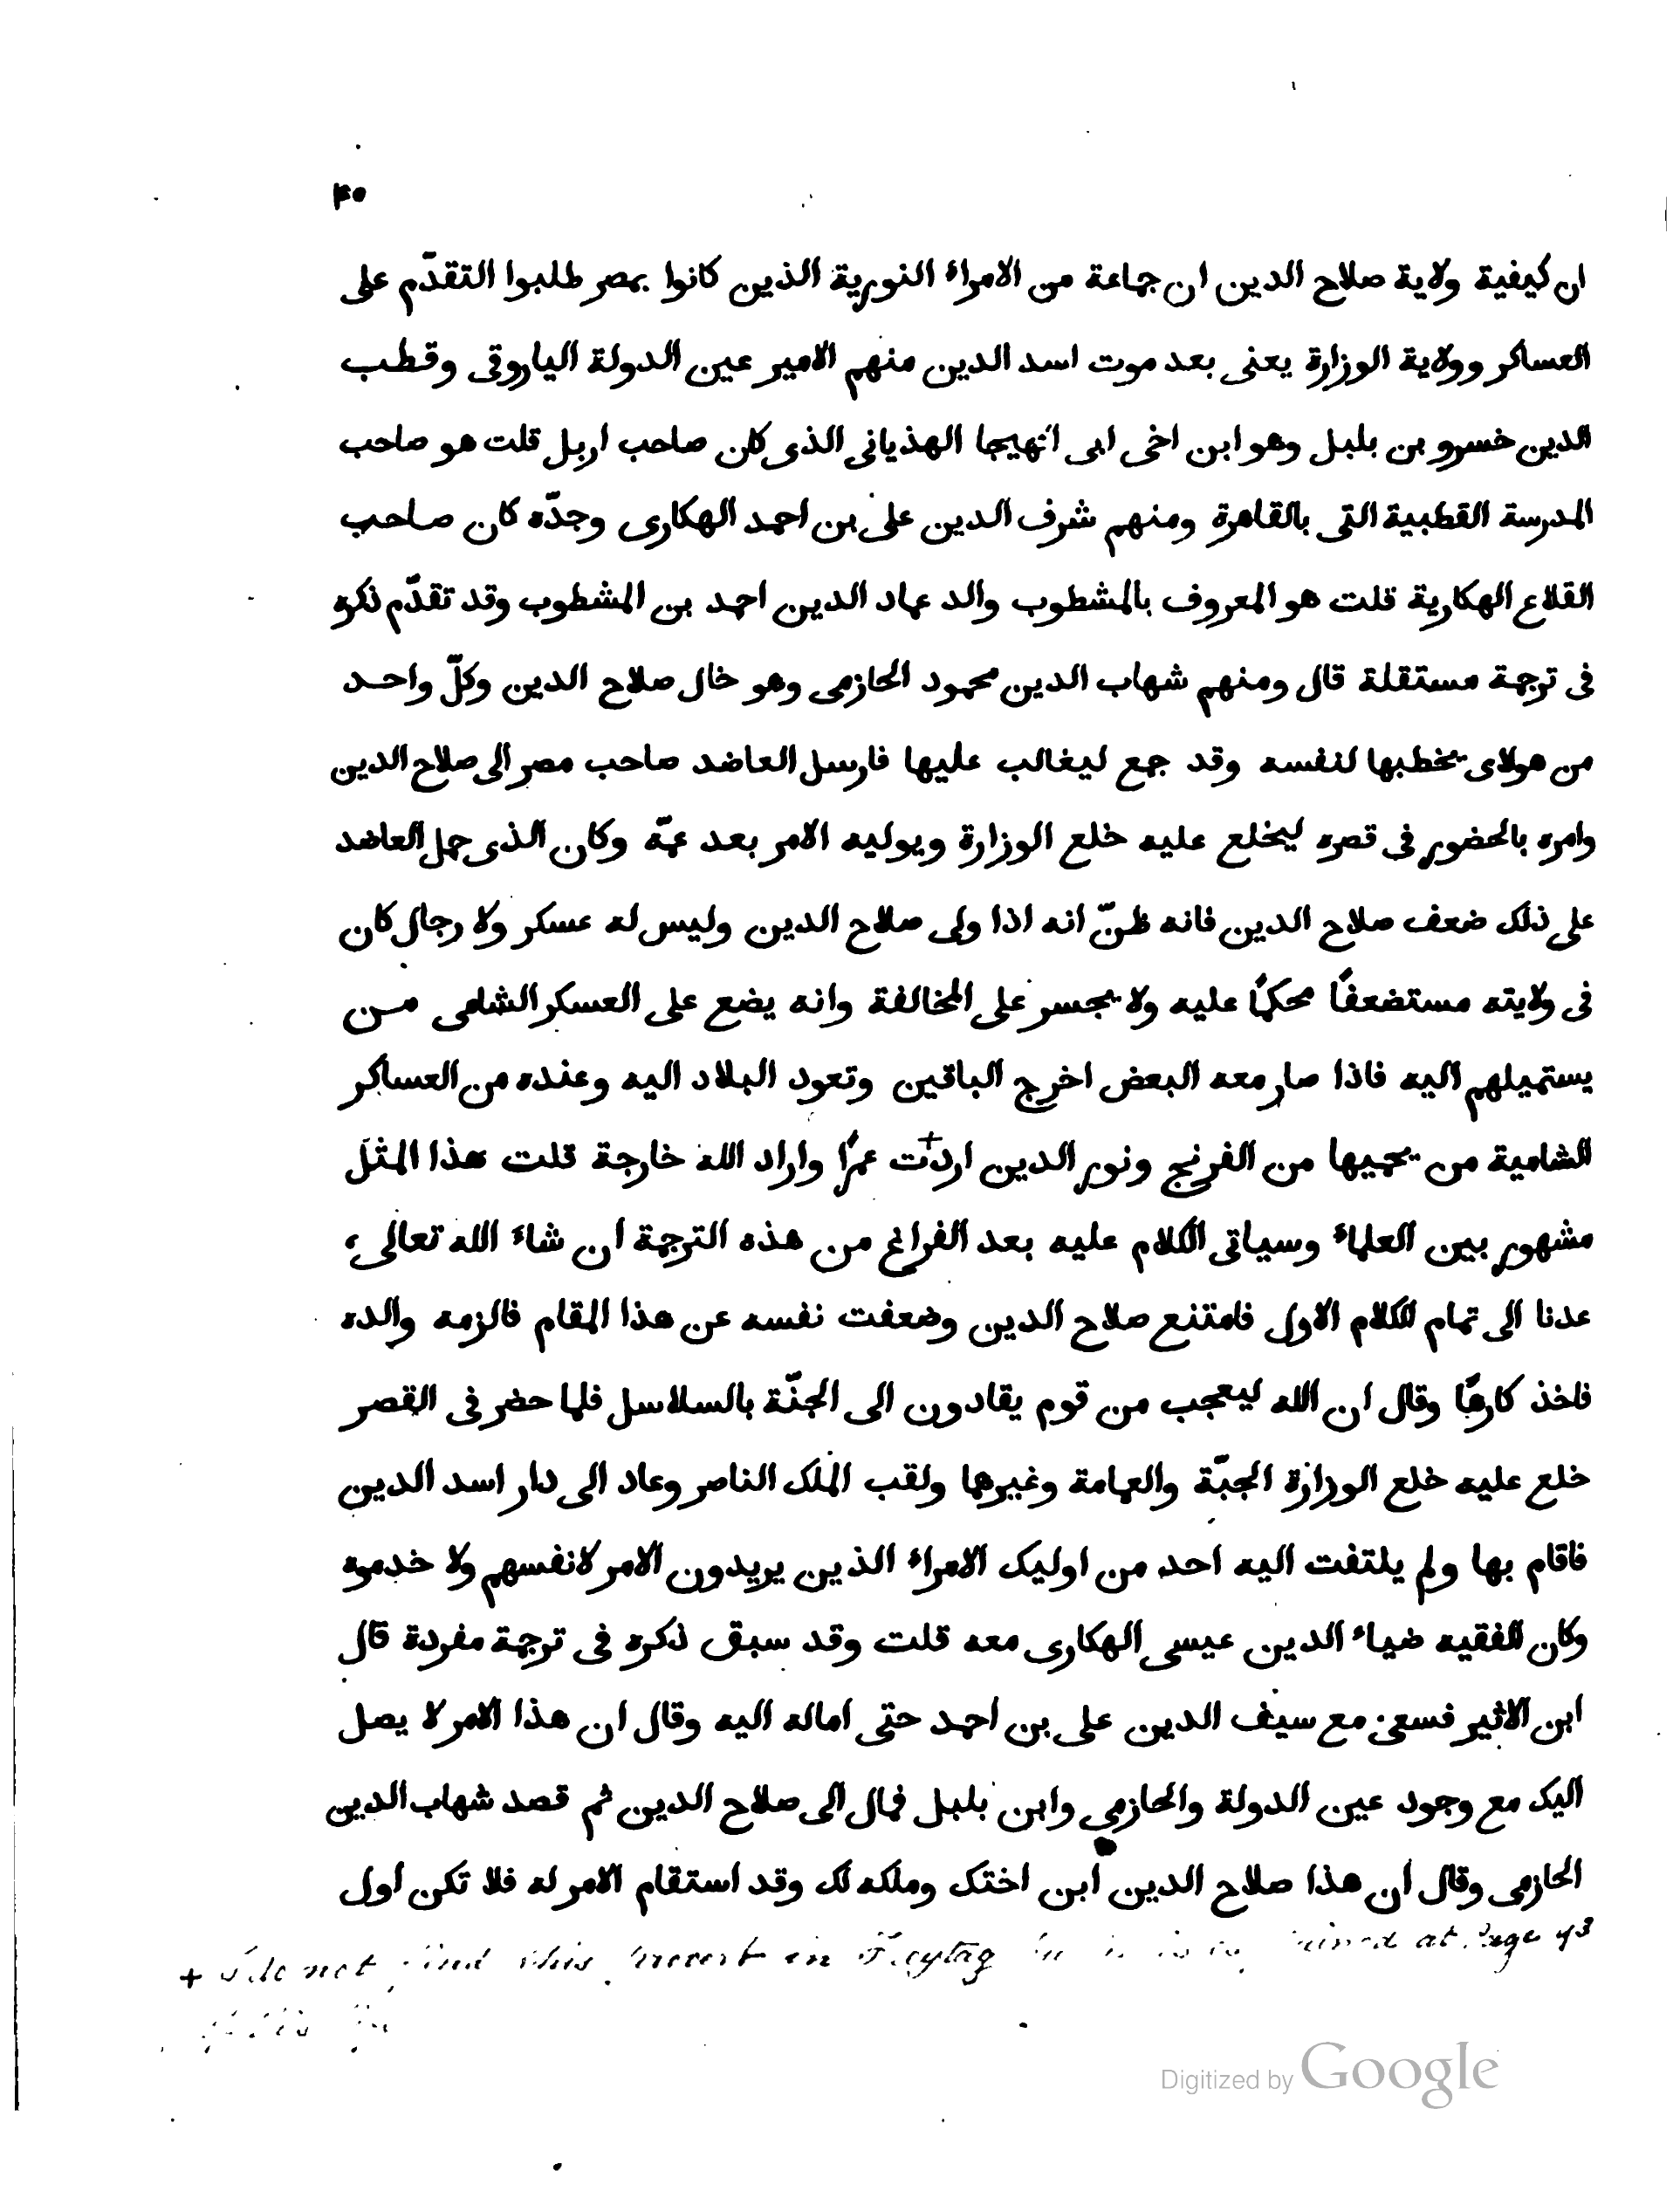 ۴۰
ان كيفية ولاية صلاح الدين ان جماعة من الامراء النورية الذين كانوا بمصر طلبوا التقدّم على
العساكر وولاية الوزارة يعنى بعد موت اسد الدين منهم الامير عين الدولة الياروقى وقطب
الدين خسرو بن بلبل وهو ابن اخى ابى الهيجا الهذيانى الذى كان صاحب اربل قلت هو صاحب
المدرسة القطبية التى بالقاهرة ومنهم شرف الدين على بن احمد الهكارى وجدّه كان صاحب
القلاع الهكارية قلت هو المعروف بالمشطوب والد عماد الدين احمد بن المشطوب وقد تقدّم ذكره
فى ترجمة مستقلة قال ومنهم شهاب الدين محمود الحازمى وهو خال صلاح الدين وكلّ واحد
من هولاى يخطبها لنفسه وقد جمع ليغالب عليها فارسل العاضد صاحب مصر الى صلاح الدين
وامره بالحضور فى قصره ليخلع عليه خلع الوزارة ويوليه الامر بعد عمّه وكان الذى حمل العاضد
على ذلك ضعف صلاح الدين فانه ظنّ انه اذا ولى صلاح الدين وليس له عسكر ولا رجال كان
فى ولايته مستضعفًا محكمًا عليه ولا يجسر على المخالفة وانه يضع على العسكر الشامى من
يستميلهم اليه فاذا صار معه البعض اخرج الباقين وتعود البلاد اليه وعنده من العساكر
الشامية من يحميها من الفرنج ونور الدين اردت+ عمرًا واراد الله خارجة قلت هذا المثل
مشهور بين العلماء وسياتى الكلام عليه بعد الفراغ من هذه الترجمة ان شاء الله تعالى،
عدنا الى تمام الكلام الاول فامتنع صلاح الدين وضعفت نفسه عن هذا المقام فالزمه والده
فاخذ كارهًا وقال ان الله ليعجب من قوم يقادون الى الجنّة بالسلاسل فلما حضر فى القصر
خلع عليه خلع الوزارة الجبّة والعمامة وغيرهما ولقب الملك الناصر وعاد الى دار اسد الدين
فاقام بها ولم يلتفت اليه احد من اوليك الامراء الذين يريدون الامر لانفسهم ولا خدموه
وكان الفقيه ضياء الدين عيسى الهكارى معه قلت وقد سبق ذكره فى ترجمة مفردة قال
ابن الاثير فسعى مع سيف الدين على بن احمد حتى اماله اليه وقال ان هذا الامر لا يصل
اليك مع وجود عين الدولة والحازمى وابن بلبل فمال الى صلاح الدين ثم قصد شهاب الدين
الحازمى وقال ان هذا صلاح الدين ابن اختك وملكه لك وقد استقام الامر له فلا تكن اول
+ I do not find this in Freytag at Page 43
Digitized by Google